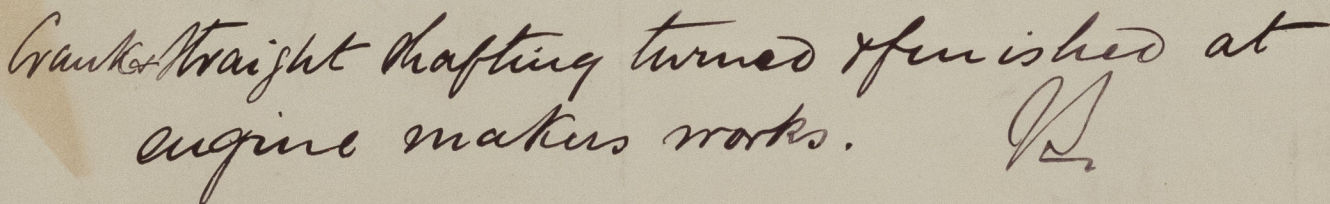 Crank & Straight Shafting turned & finished at
engine makers works.